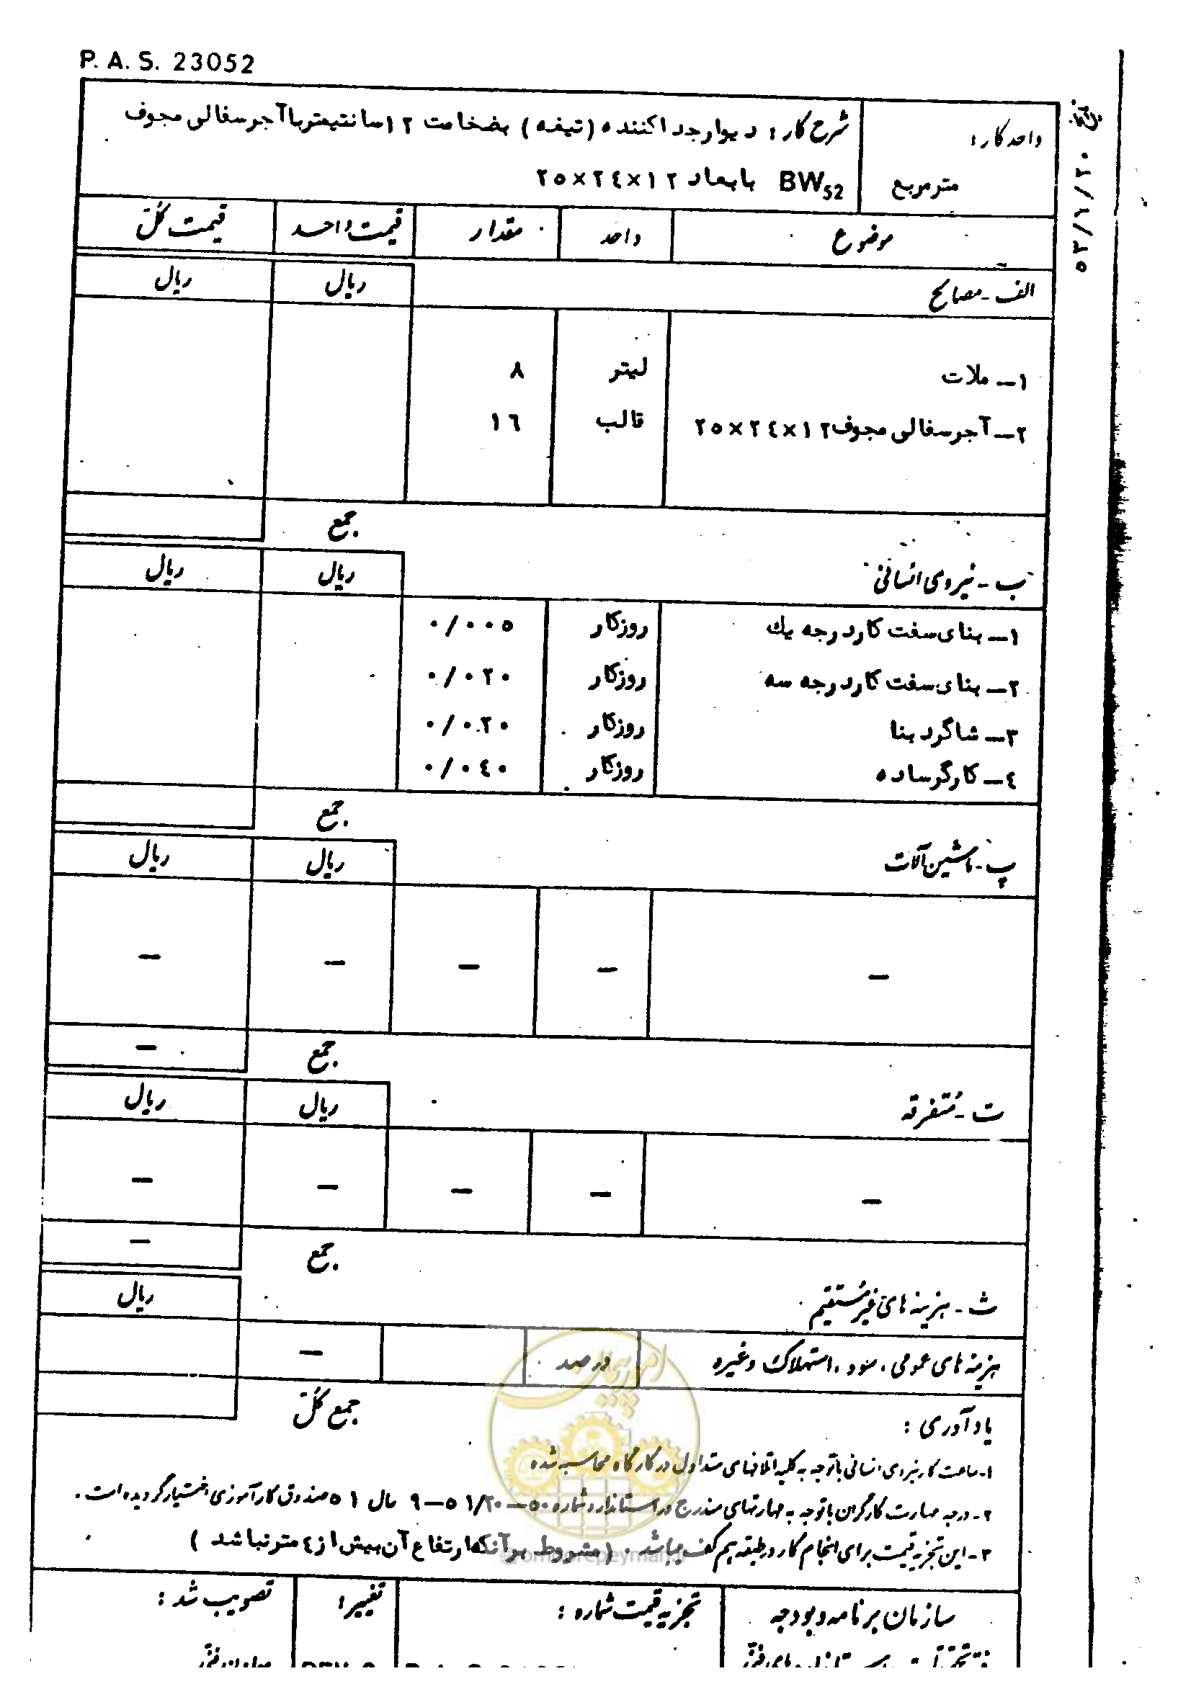 P. A. S. 23052
۵۳/۱/۲۰
واحد کار:
مترمربع
شرح کار: دیوار جدا کننده (تیغه) بضخامت ۱۲ سانتیمتر با آجر سفالی مجوف
BW52 بابعاد ۱۲×۲۴×۲۵
موضوع واحد مقدار قیمت واحد قیمت کل
الف - مصالح ریال ریال
۱- ملات لیتر ۸
۲- آجر سفالی مجوف ۱۲×۲۴×۲۵ قالب ۱۶
جمع
ب - نیروی انسانی ریال ریال
۱- بنای سفت کار درجه یك روزکار ۰/۰۰۵
۲- بنای سفت کار درجه سه روزکار ۰/۰۲۰
۳- شاگرد بنا روزکار ۰/۰۲۰
۴- کارگر ساده روزکار ۰/۰۴۰
جمع
پ - ماشین آلات ریال ریال
— — — — —
جمع —
ت - متفرقه ریال ریال
— — — — —
جمع —
ث - هزینه های غیر مستقیم ریال
هزینه های عمومی، سود، استهلاک وغیره درصد —
جمع کل
یادآوری :
۱- ساعت کار نیروی انسانی باتوجه به کلیه اتلافهای متداول در کارگاه محاسبه شده
۲- درجه مهارت کارگران باتوجه به مهارتهای مندرج در استاندارد شماره ۵۰-۵۱/۲۰-۹ سال ۵۱ صندوق کارآموزی اختیار گردیده است.
۳- این تجزیه قیمت برای انجام کار در طبقه هم کف میباشد. (مشروط بر آنکه ارتفاع آن بیش از ۴ متر نباشد)
سازمان برنامه و بودجه تجزیه قیمت شماره : تغییر: تصویب شد :